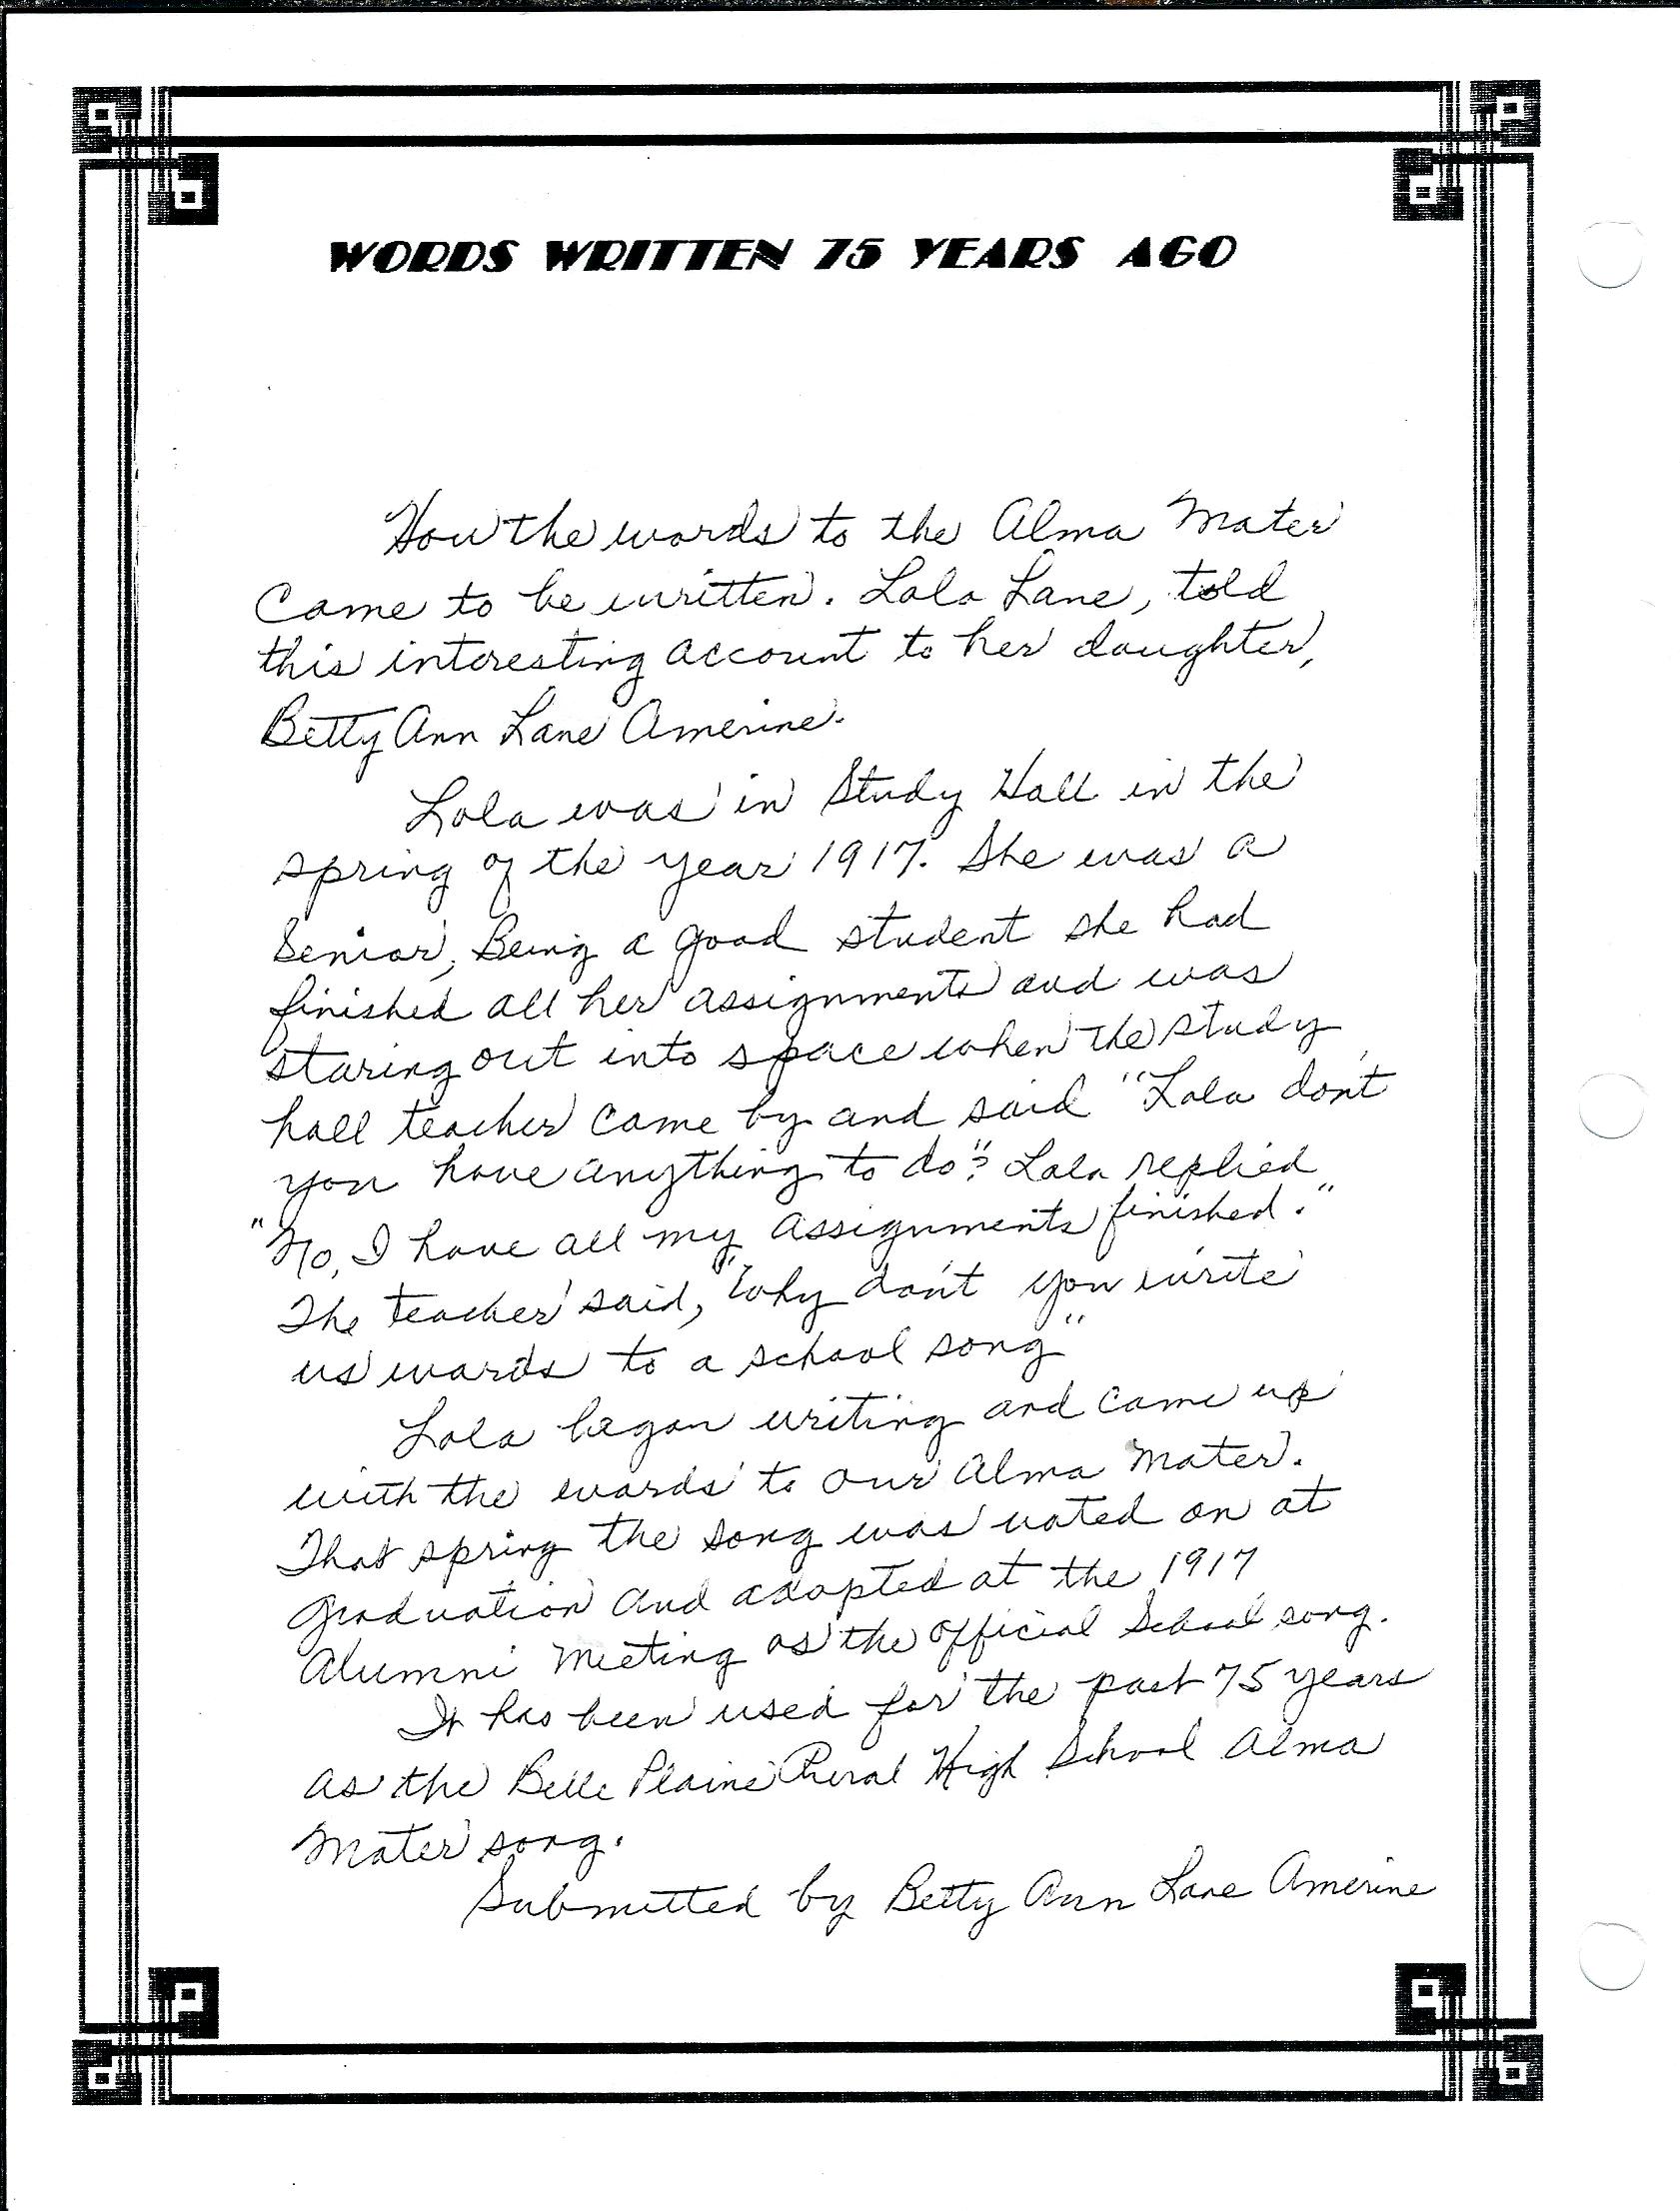 WORDS WRITTEN 75 YEARS AGO
How the words to the Alma Mater
Came to be written. Lola Lane, told
this interesting account to her daughter,
Betty Ann Lane Amerine.
Lola was in Study Hall in the
spring of the year 1917. She was a
Senior, Being a good student she had
finished all her assignments and was
staring out into space when the study
hall teacher came by and said "Lola don't
you have anything to do"? Lola replied
"No, I have all my assignments finished."
The teacher said, "Why don't you write
us words to a school song"
Lola began writing and came up
with the words to our Alma Mater.
That spring the song was voted on at
graduation and adopted at the 1917
Alumni Meeting as the official School song.
It has been used for the past 75 years
as the Belle Plaine Rural High School Alma
Mater song.
Submitted by Betty Ann Lane Amerine